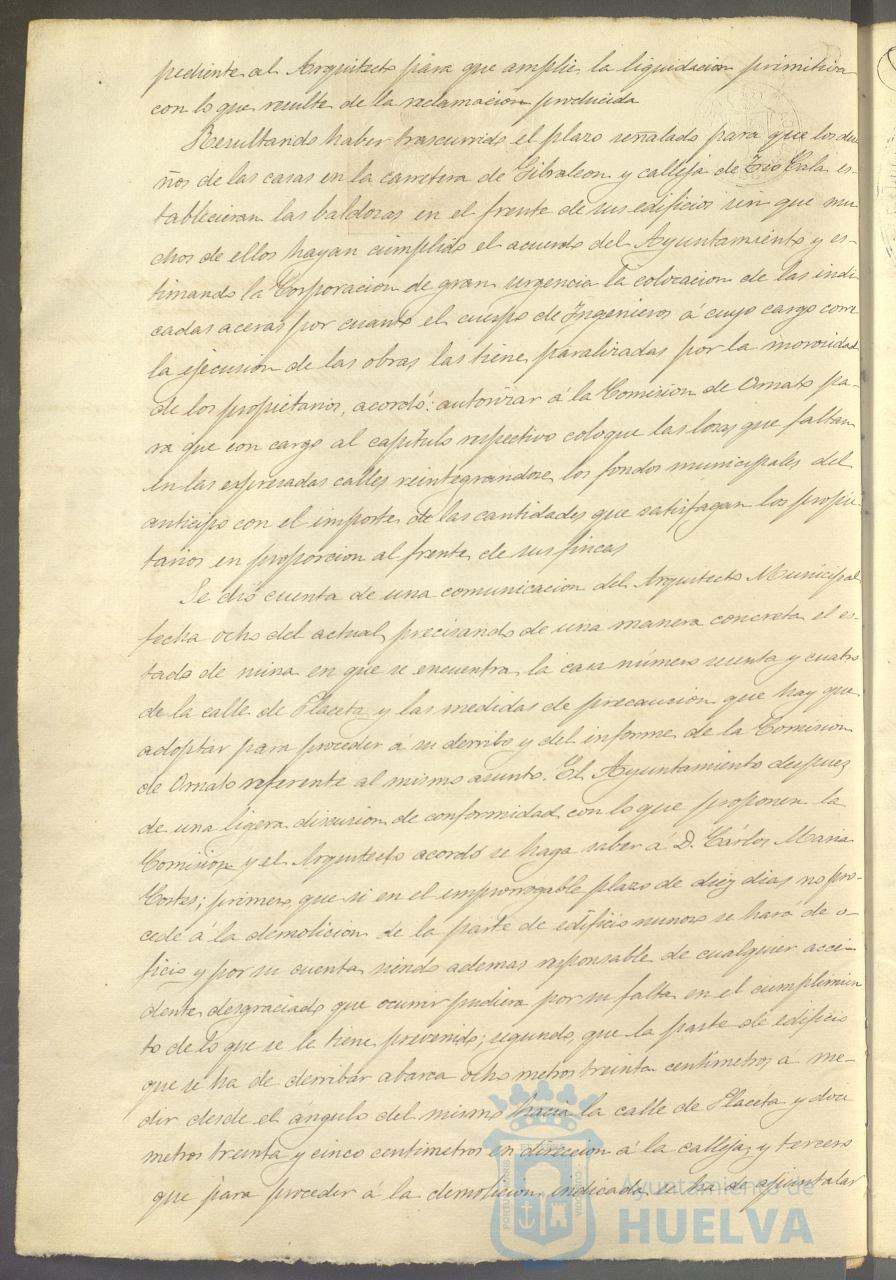 pediente al Arquitecto para que amplie la liquidacion primitiva
con lo que resulte de la reclamacion producida
Resultando haber trascurrido el plazo señalado para que los due
ños de las casas en la carretera de Gibraleon y calleja de Tio Cala es-
tablecieran las baldosas en el frente de sus edificios sin que mu
chos de ellos hayan cumplido el acuerdo del Ayuntamiento y es-
timando la Corporacion de gran urgencia la colocacion de las indi
cadas aceras por cuanto el cuerpo de Ingenieros á cuyo cargo corre
la ejecusion de las obras las tiene paralizadas por la morosidad
de los propietarios, acordó: autorizar á la Comision de Ornato pa-
ra que con cargo al capítulo respectivo coloque las losas que faltan
en las expresadas calles reintegrandose los fondos municipales del
anticipo con el importe de las cantidades que satisfagan los propie-
tarios en proporcion al frente de sus fincas
Se dió cuenta de una comunicacion del Arquitecto Municipal
fecha ocho del actual, precisando de una manera concreta el es-
tado de ruina en que se encuentra la casa número sesenta y cuatro
de la calle de Placeta y las medidas de precaucion que hay que
adoptar para proceder á su derribo y del informe de la Comision
de Ornato referente al mismo asunto. El Ayuntamiento despues
de una ligera discusion de conformidad con lo que proponen la
Comision y el Arquitecto acordó se haga saber á D. Cárlos Maria
Cortes; primero, que si en el improrrogable plazo de diez dias no pro-
cede á la demolicion de la parte de edificio ruinoso se hará de o-
ficio y por su cuenta siendo ademas responsable de cualquier acci-
dente desgraciado que ocurrir pudiera por su falta en el cumplimien
to de lo que se le tiene prevenido; segundo, que la parte de edificio
que se ha de derribar abarca ocho metros treinta centímetros á me-
dir desde el ángulo del mismo hacia la calle de Placeta y doce
metros treinta y cinco centimetros en direccion á la calleja; y tercero
que para proceder á la demolicion indicada se ha de apuntalar
Ayuntamiento de
HUELVA